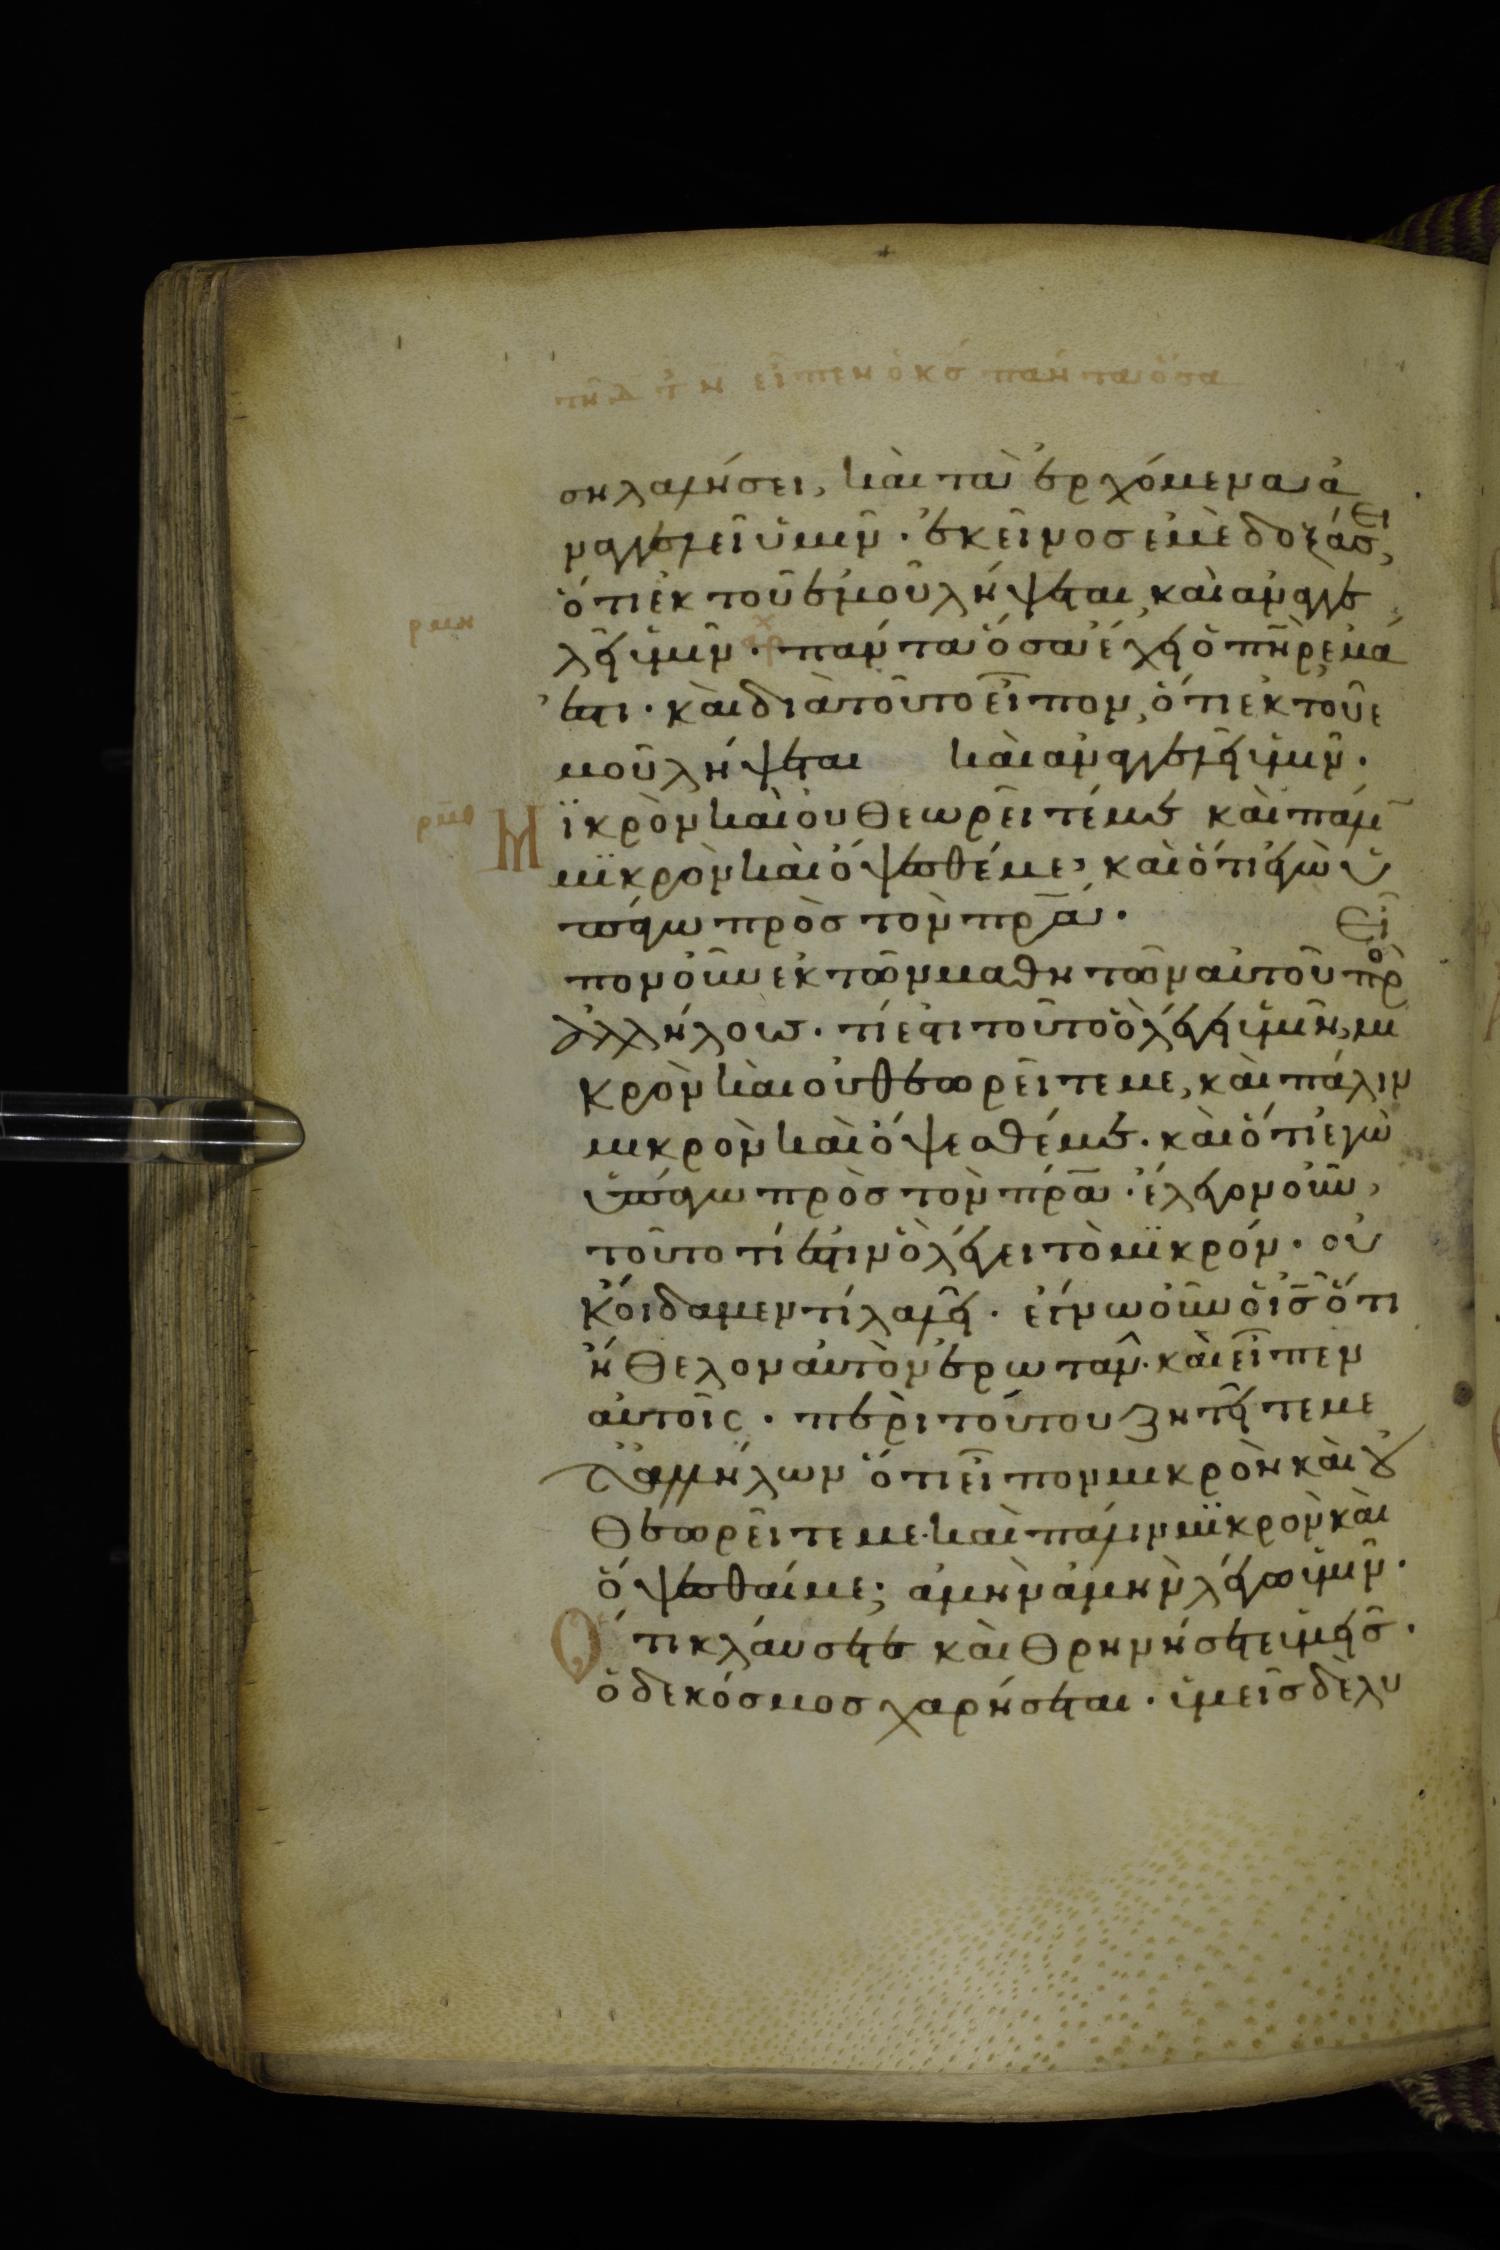 τῆ δ τ ν εἶπεν ὁ κς πάντα ὅσα
ση λαλήσει, καὶ τὰ ἐρχόμενα ἀ
ναγγελεῖ ὑμῖν · ἐκεῖνος ἐμὲ δοξάσει,
ὅτι ἐκ τοῦ ἐμοῦ λήψεται, καὶ ἀναγγε
λεῖ ὑμῖν · πάντα ὅσα ἔχει ὁ πηρ ἐμά
ρμη
ἐστι · καὶ διὰ τοῦτο εἶπον, ὅτι ἐκ τοῦ ἐ
μοῦ λήψεται καὶ ἀναγγελεῖ ὑμῖν ·
ρμθ
Μϊκρὸν καὶ οὐ θεωρεῖτέ με καὶ πάλιν
μϊκρὸν καὶ ὄψεσθέ με, καὶ ὅτι ἐγὼ ὑ
πάγω πρὸς τὸν πρα · Εἶ
πον οὖν ἐκ τῶν μαθητῶν αὐτοῦ πρὸ
ἀλλήλους · τί ἐστι τοῦτο ὃ λέγει ὑμῖν, μι
κρὸν καὶ οὐ θεωρεῖτε με, καὶ πάλιν
μικρὸν καὶ ὄψεσθέ με · καὶ ὅτι ἐγὼ
ὑπάγω πρὸς τὸν πρα · ἔλεγον οὖν,
τοῦτο τί ἐστιν ὃ λέγει τὸ μϊκρόν · οὐ
κ οἴδαμεν τί λαλεῖ · ἔγνω οὖν ὁ ις ὅτι
ἤθελον αὐτὸν ἐρωτᾶν · καὶ εἶπεν
αὐτοῖς · περὶ τούτου ζητεῖτε με
τ ἀλλήλων ὅτι εἶπον μικρὸν καὶ οὐ
θεωρεῖτε με · καὶ πάλιν μϊκρὸν καὶ
ὄψεσθαί με; ἀμὴν ἀμὴν λέγω ὑμῖν ·
Ὅτι κλαύσετε καὶ θρηνήσετε ὑμεῖς ·
ὁ δε κόσμος χαρήσεται · ὑμεῖς δὲ λυ